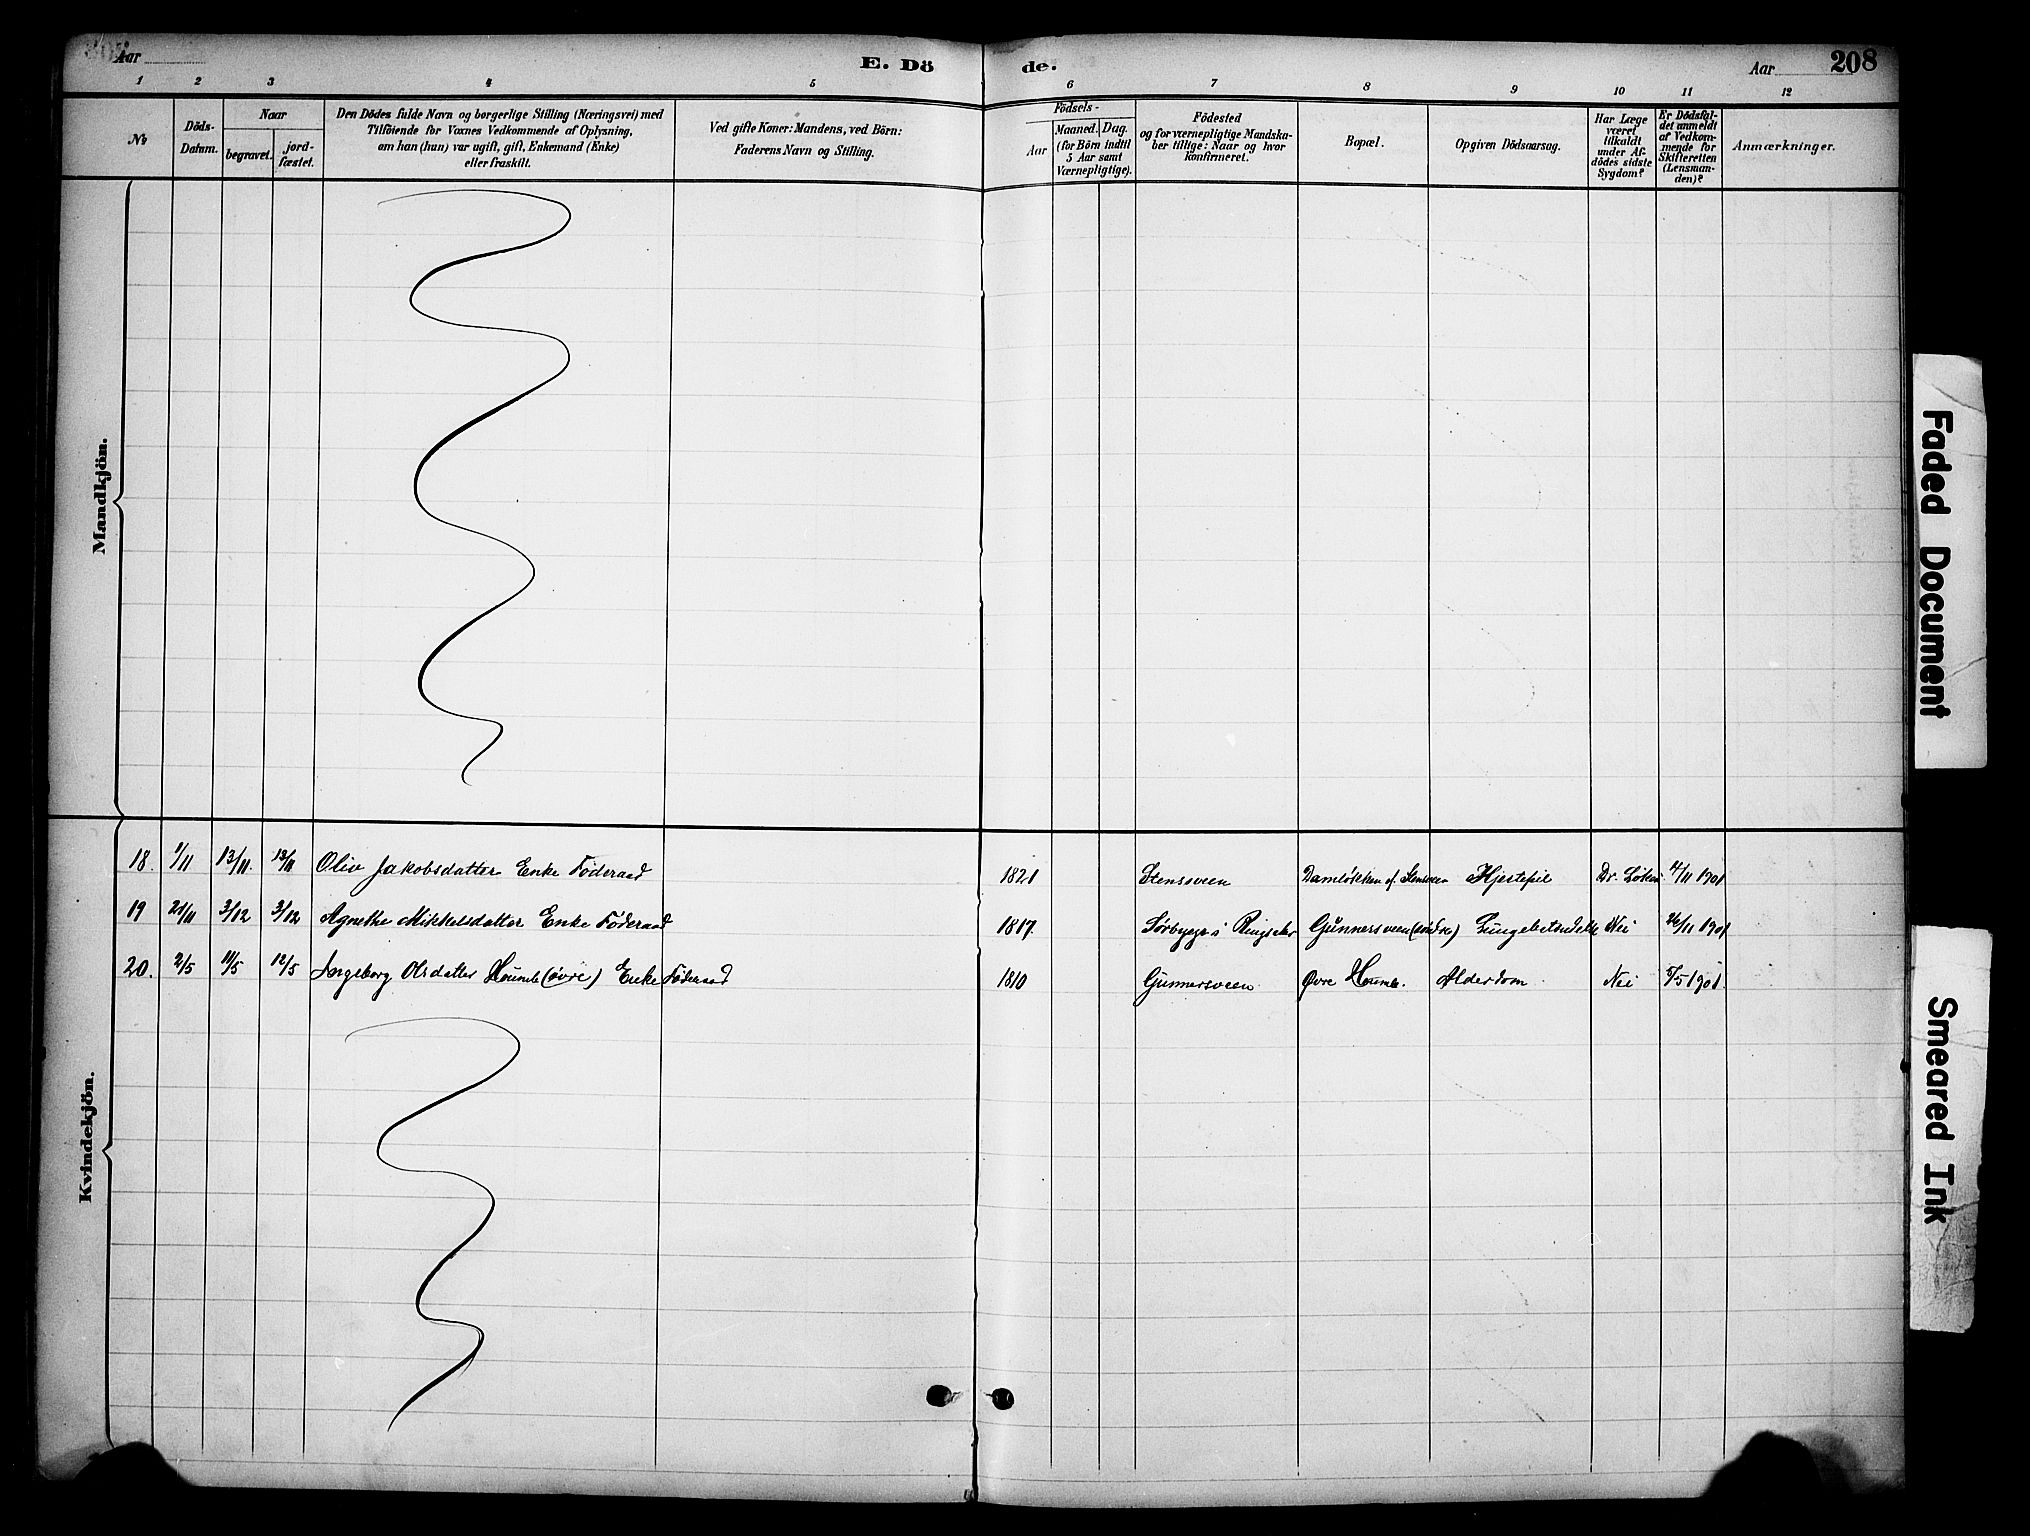 Aar
E. Dö de.
Aar
208
1 2 3 4 5 6 7 8 9 10 11 12
№
Döds-
Datum.
Naar
begravet.
jord-
fæstet.
Den Dödes fulde Navn og borgerlige Stilling (Næringsvei) med
Tilföiende for Voxnes Vedkommende af Oplysning,
om han (hun) var ugift, gift, Enkemand (Enke)
eller fraskilt.
Ved gifte Koner: Mandens, ved Börn:
Faderens Navn og Stilling.
Födsels-
Aar
Maaned. Dag.
(for Börn indtil
5 Aar samt
Værnepligtige).
Födested
og for værnepligtige Mandska-
ber tillige: Naar og hvor
konfirmeret.
Bopæl.
Opgiven Dödsaarsag.
Har Læge
været
tilkaldt
under Af-
dödes sidste
Sygdom?
Er Dödsfal-
det anmeldt
af Vedkom-
mende for
Skifteretten
(Lensman-
den)?
Anmærkninger.
Mandkjön.
Kvindekjön.
18. 1/11 13/11. 13/11 Oliv Jakobsdatter Enke Föderaad 1821 Stenssveen Damløkken af Stensveen Hjertefeil Dr. Löken 4/11 1901
19 21/11 3/12 3/12 Agnethe Mikkelsdatter Enke Föderaad 1817 Sørbygge i Ringsaker Gunnersveen (søndre) Lungebetændelse Nei 26/11 1901
20. 2/5 11/5 12/5 Ingeborg Olsdatter Houmb (øvre) Enke Föderaad 1810 Gunnersveen Øvre Houmb. Alderdom. Nei 5/5 1901.
Faded Document
Smeared Ink